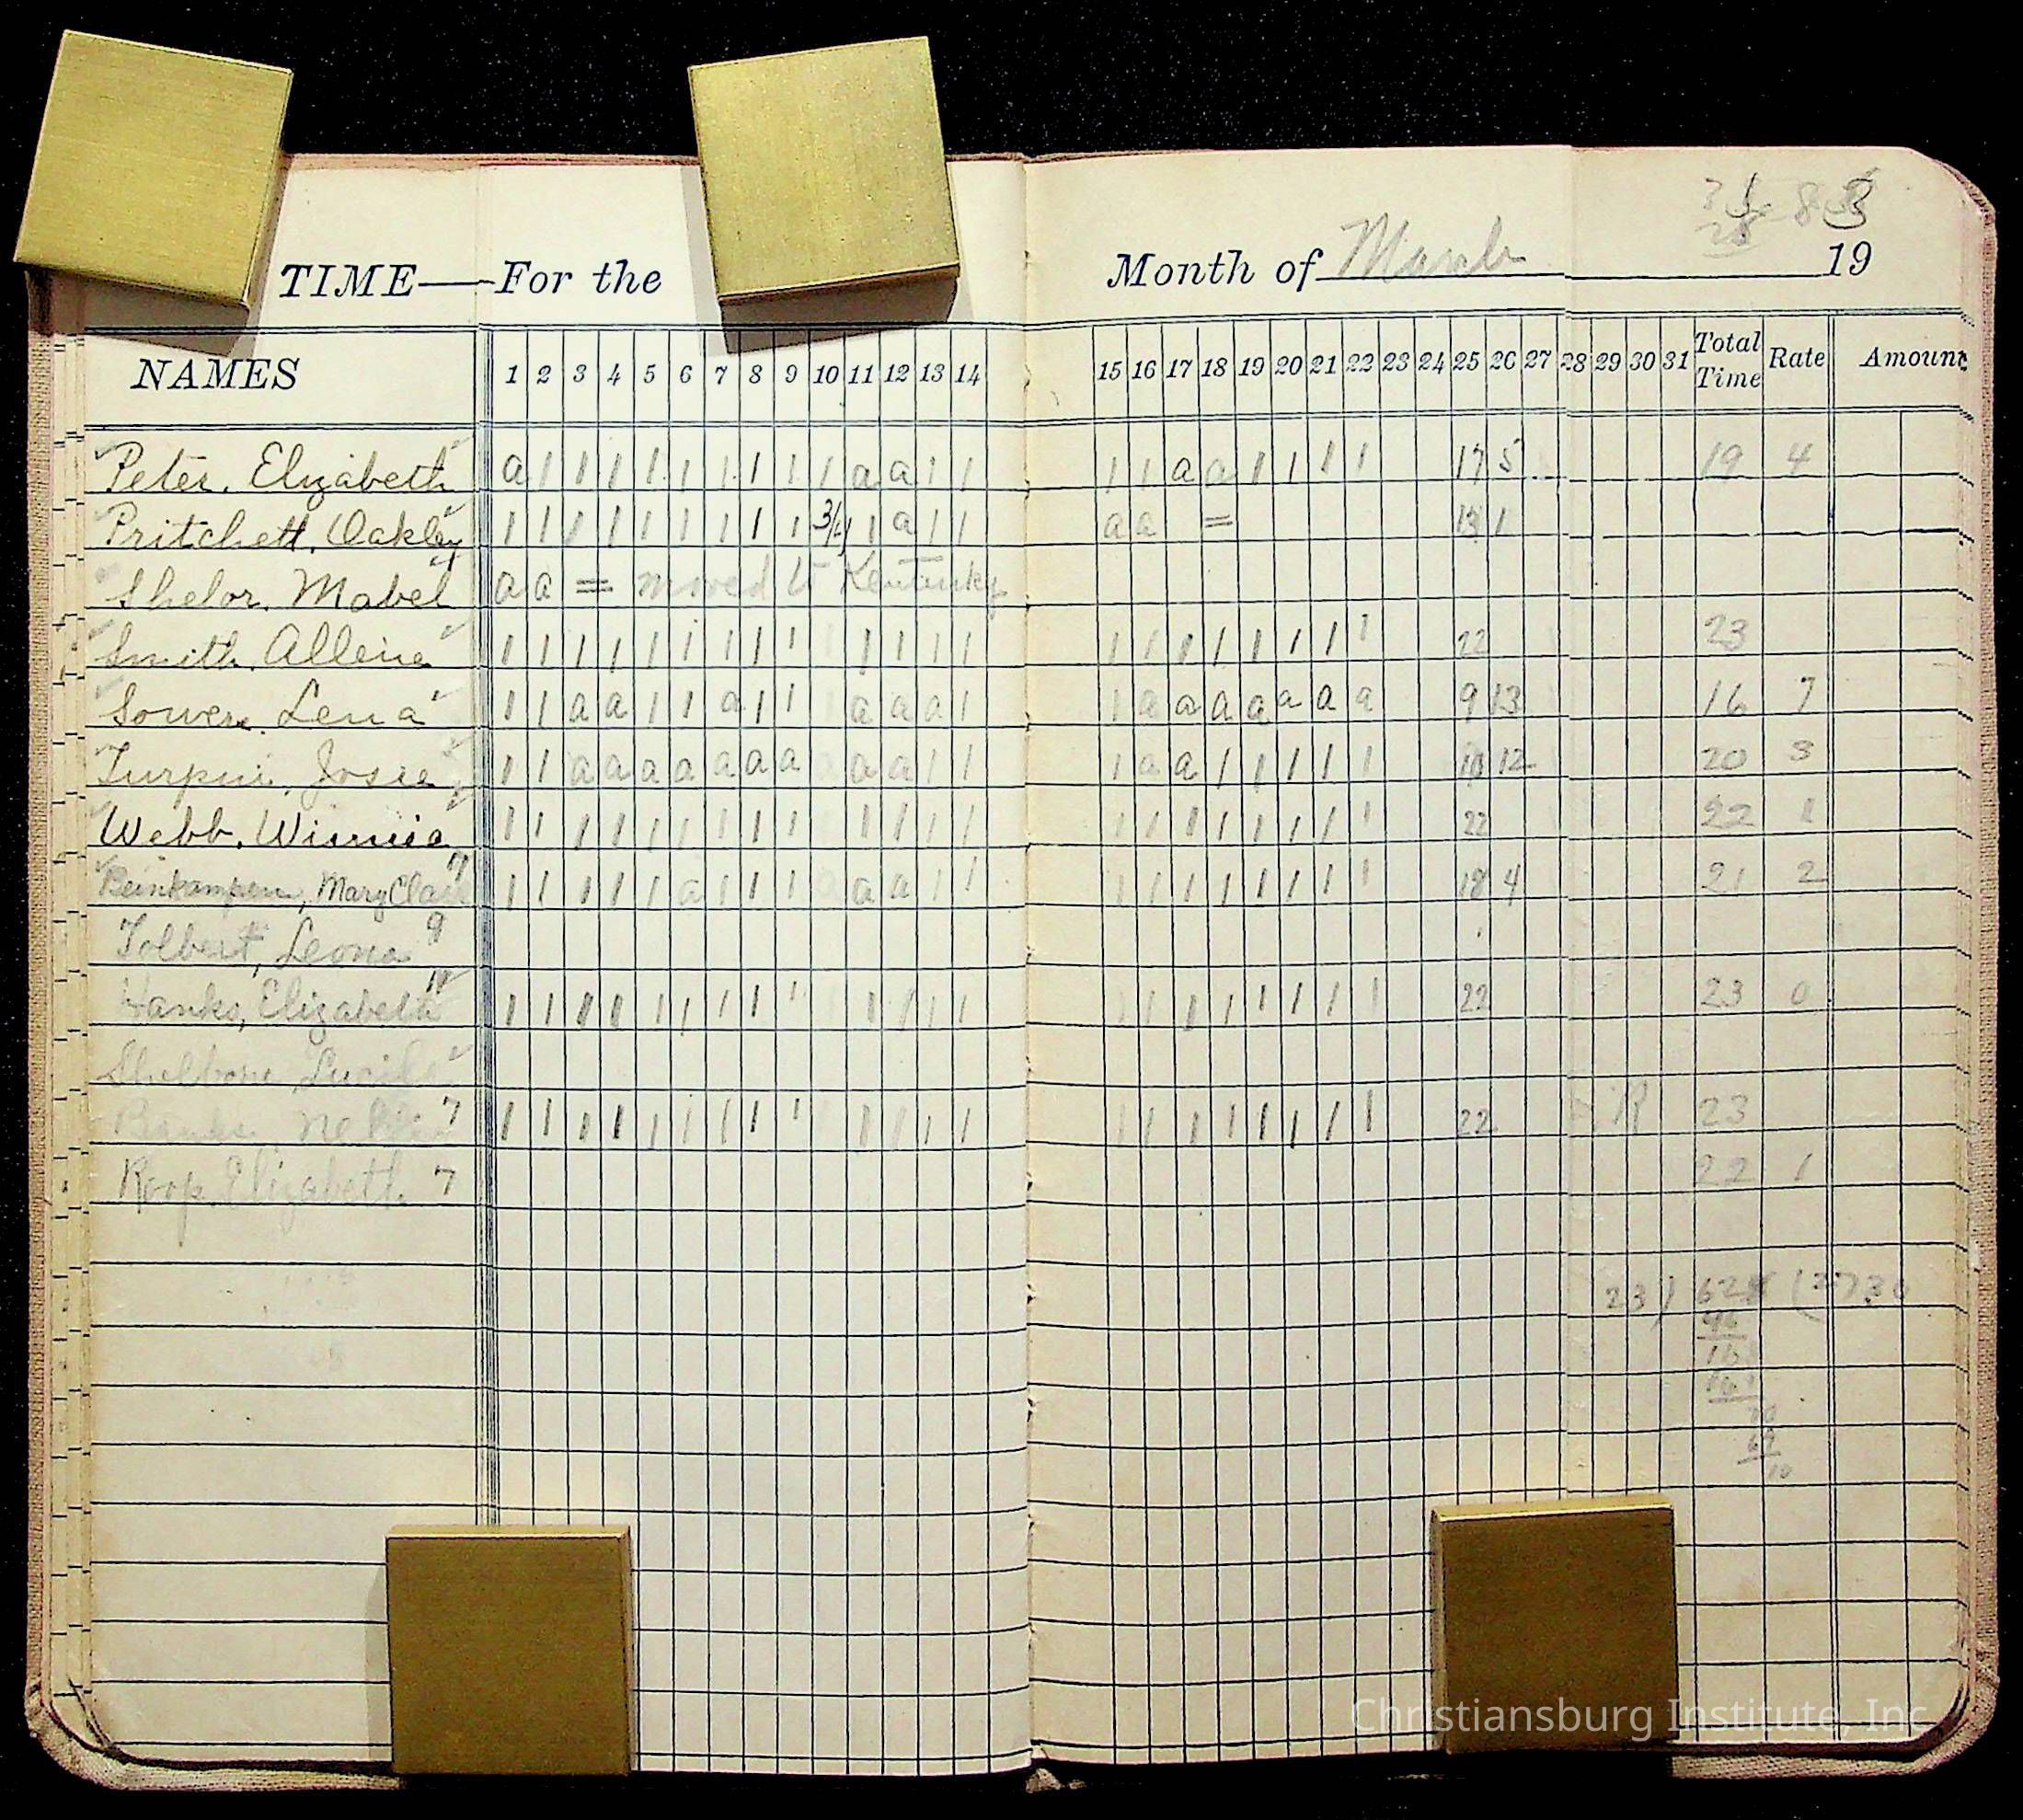 TIME—For the Month of March 19
NAMES 1 2 3 4 5 6 7 8 9 10 11 12 13 14 15 16 17 18 19 20 21 22 23 24 25 26 27 28 29 30 31 Total Time Rate Amount
Peter, Elizabeth a 1 1 1 1 1 1 1 1 1 a a 1 1 1 1 a a 1 1 1 1 17 5 19 4
Pritchett, Oakley 1 1 1 1 1 1 1 1 1 3/4 1 a 1 1 a a = 1
Shelor, Mabel a a = moved to Kentucky
Smith, Allene 1 1 1 1 1 1 1 1 1 1 1 1 1 1 1 1 1 1 1 1 1 22 23
Sowers, Lena 1 1 a a 1 1 a 1 1 a a a 1 1 a a a a a a a 9 13 16 7
Turpin, Josie 1 1 a a a a a a a a a 1 1 1 a a 1 1 1 1 1 10 12 20 3
Webb, Winnie 1 1 1 1 1 1 1 1 1 1 1 1 1 1 1 1 1 1 1 1 1 22 22 1
Beinkampen, Mary Clare 7 1 1 1 1 1 a 1 1 1 a a 1 1 1 1 1 1 1 1 1 1 18 4 21 2
Tolbert, Leona 9
Hanks, Elizabeth 1 1 1 1 1 1 1 1 1 1 1 1 1 1 1 1 1 1 1 1 1 22 23 0
Lucile
7 1 1 1 1 1 1 1 1 1 1 1 1 1 1 1 1 1 1 1 1 1 22 R 23
Roop, Elizabeth 7 22 1
23)
Christiansburg Institute, Inc